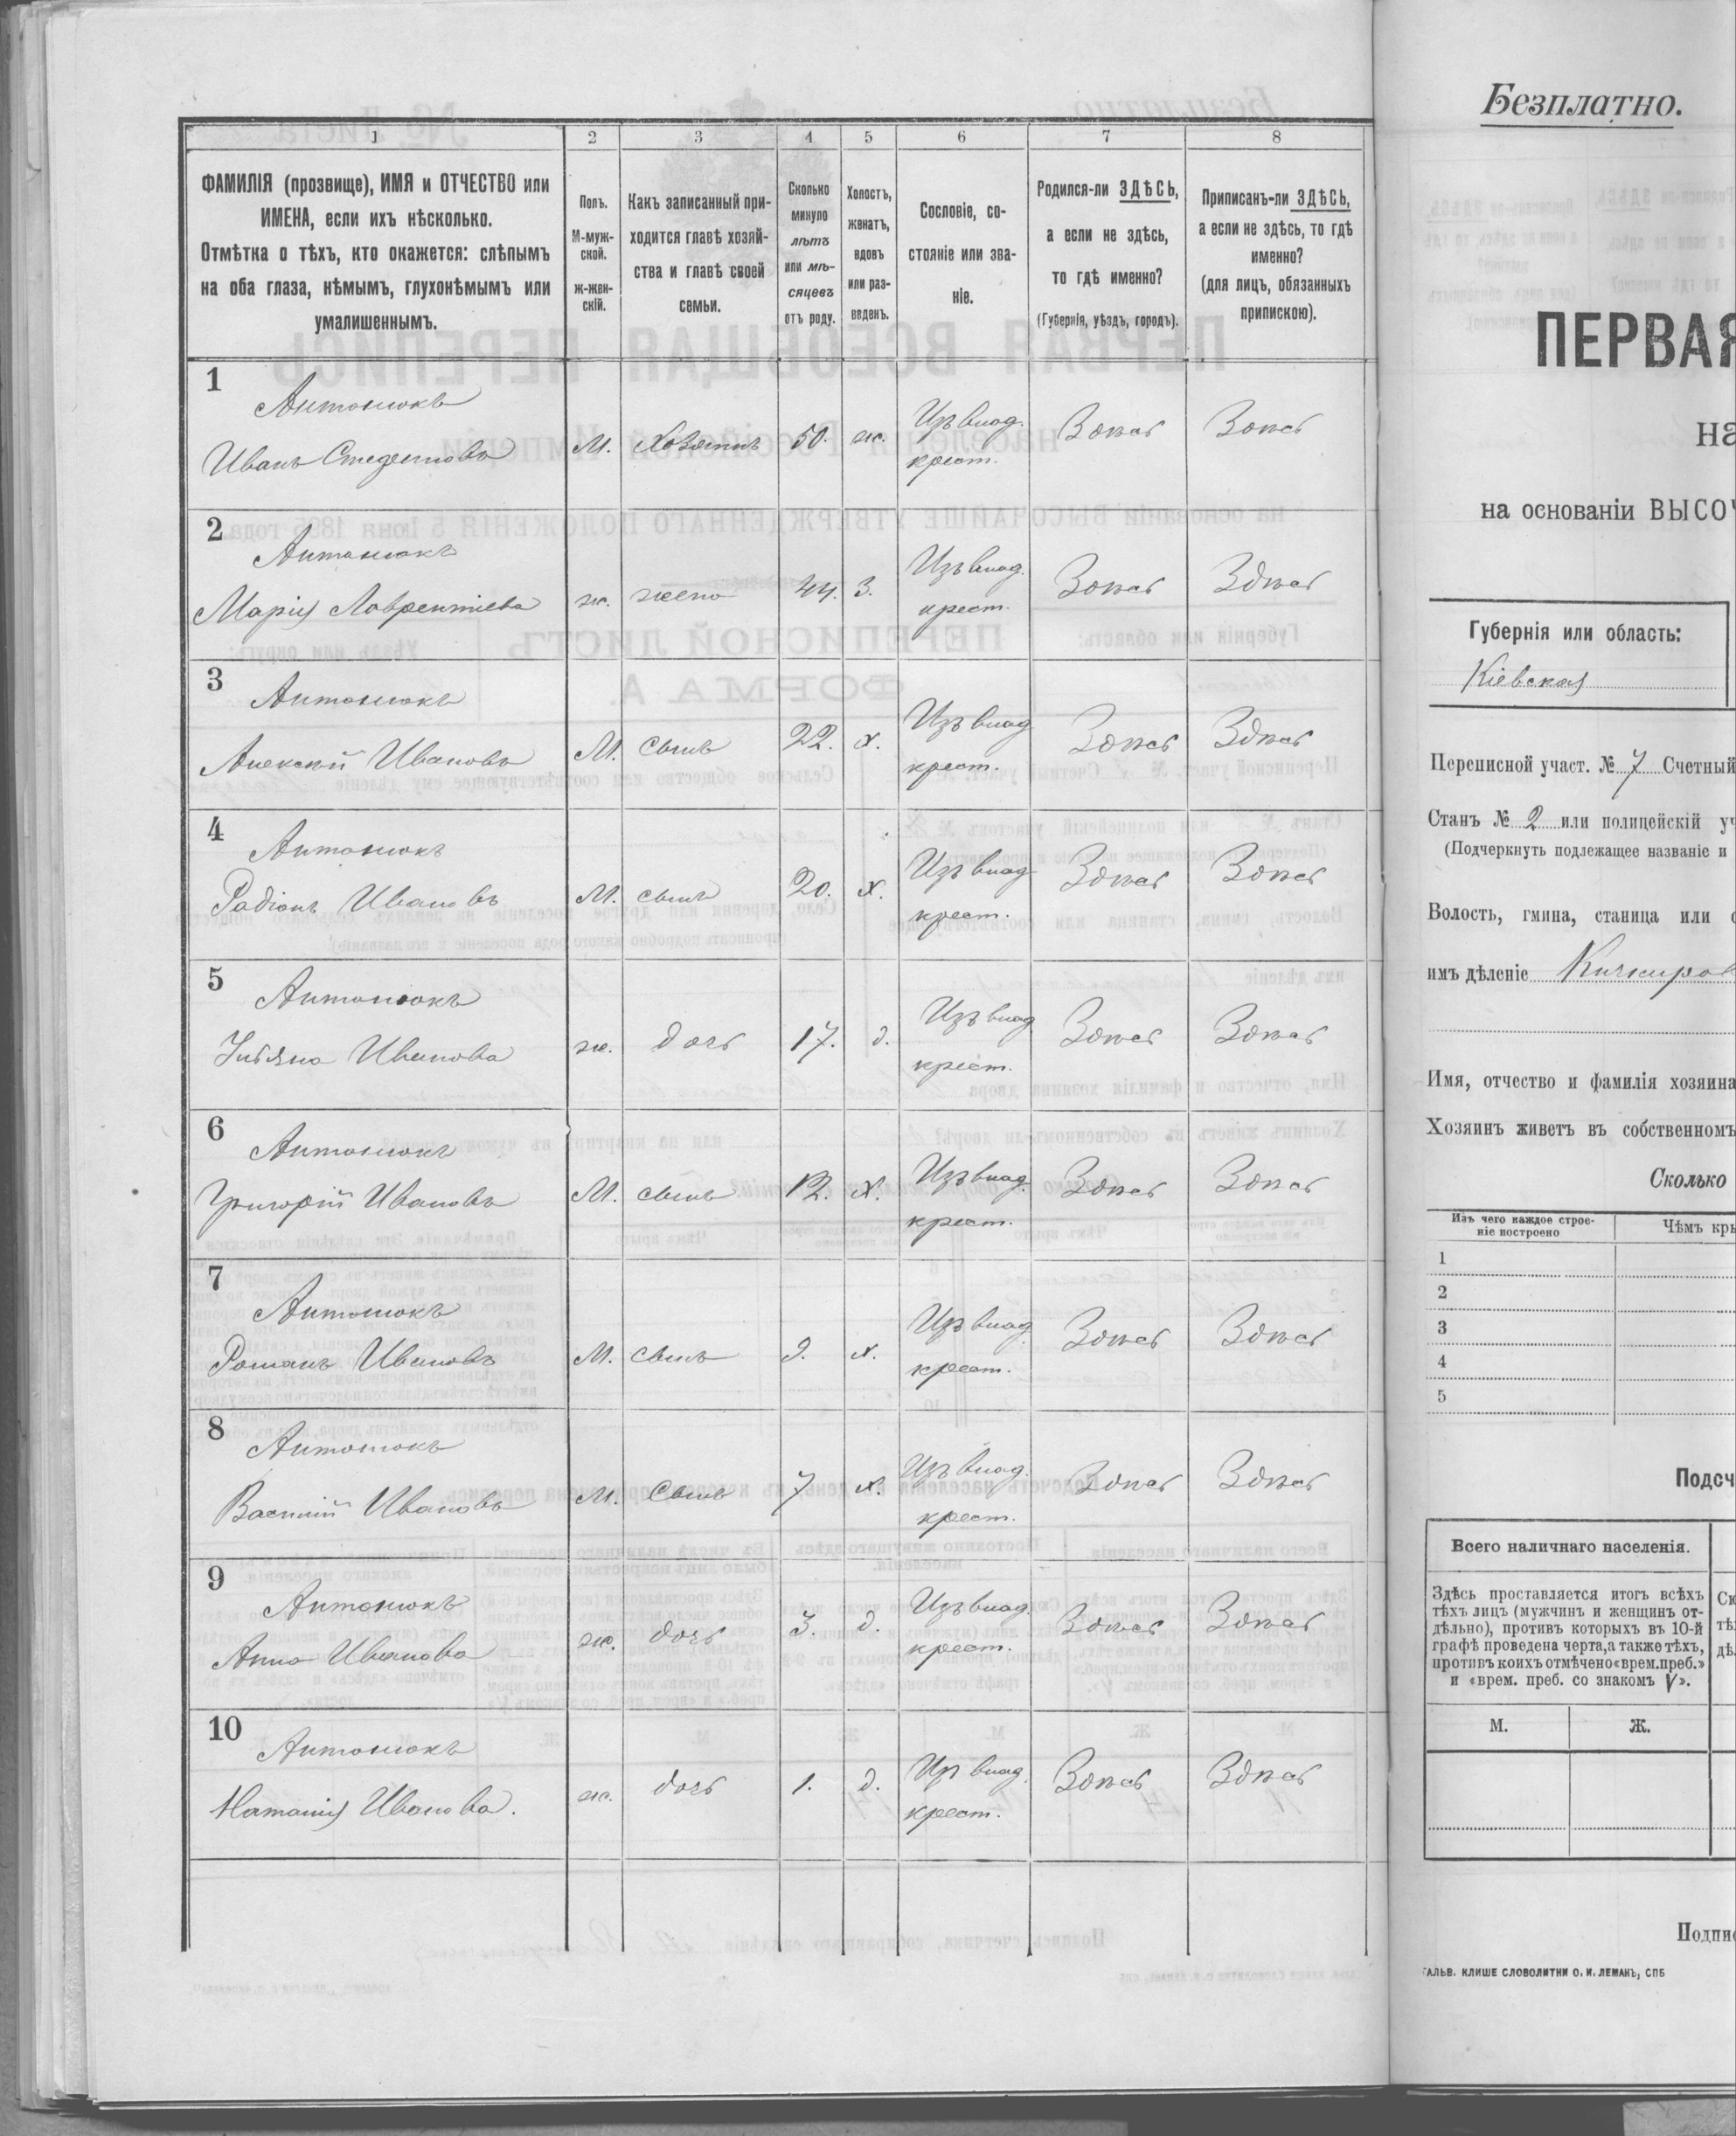 1 2 3 4 5 6 7 8
ФАМИЛІЯ (прозвище), ИМЯ и ОТЧЕСТВО или
ИМЕНА, если ихъ нѣсколько.
Отмѣтка о тѣхъ, кто окажется: слѣпымъ
на оба глаза, нѣмымъ, глухонѣмымъ или
умалишеннымъ.
Полъ.
М-муж-
ской.
ж-жен-
скій.
Какъ записанный при-
ходится главѣ хозяй-
ства и главѣ своей
семьи.
Сколько
минуло
лѣтъ
или мѣ-
сяцевъ
отъ роду.
Холостъ,
женатъ,
вдовъ
или раз-
веденъ.
Сословіе, со-
стояніе или зва-
ніе.
Родился-ли ЗДѢСЬ,
а если не здѣсь,
то гдѣ именно?
(Губернія, уѣздъ, городъ).
Приписанъ-ли ЗДѢСЬ,
а если не здѣсь, то гдѣ
именно?
(для лицъ, обязанныхъ
припискою).
1
Антонюкъ
Иванъ М. Хозяинъ 50. ж. Изъ влад. Здѣсь Здѣсь
крест.
2
Антонюкъ
Марія Лаврентіева ж. жена 44. З. Изъ влад. Здѣсь Здѣсь
крест.
3
Антонюкъ
Алексѣй Ивановъ М. сынъ 22. х. Изъ влад. Здѣсь Здѣсь
крест.
4
Антонюкъ
Радіонъ Ивановъ М. сынъ 20. х. Изъ влад. Здѣсь Здѣсь
крест.
5
Антонюкъ
Иванова ж. дочь 17. д. Изъ влад. Здѣсь Здѣсь
крест.
6
Антонюкъ
Григорій Ивановъ М. сынъ 12. х. Изъ влад. Здѣсь Здѣсь
крест.
7
Антонюкъ
Романъ Ивановъ М. сынъ 9. х. Изъ влад. Здѣсь Здѣсь
крест.
8
Антонюкъ
Василій Ивановъ М. Сынъ 7 х. Изъ влад. Здѣсь Здѣсь
крест.
9
Антонюкъ
Анна Иванова ж. дочь 3. д. Изъ влад. Здѣсь Здѣсь
крест.
10
Антонюкъ
Наталія Иванова. ж. дочь 1. д. Изъ влад. Здѣсь Здѣсь
крест.
Безплатно.
ПЕРВАЯ
на
на основаніи ВЫСОЧ
Губернія или область:
Кіевская
Переписной участ. № 7 Счетный
Станъ № 2 или полицейскій уч
(Подчеркнуть подлежащее названіе и
Волость, гмина, станица или с
имъ дѣленіе
Имя, отчество и фамилія хозяина
Хозяинъ живетъ въ собственномъ
Сколько
Изъ чего каждое строе-
ніе построено
Чѣмъ кры
1
2
3
4
5
Подсч
Всего наличнаго населенія.
Здѣсь проставляется итогъ всѣхъ
тѣхъ лицъ (мужчинъ и женщинъ от-
дѣльно), противъ которыхъ въ 10-й
графѣ проведена черта, а также тѣхъ,
противъ коихъ отмѣчено «врем. преб.»
и «врем. преб. со знакомъ V».
М. Ж.
Подпи
ГАЛЬВ. КЛИШЕ СЛОВОЛИТНИ О. И. ЛЕМАНЪ, СПБ